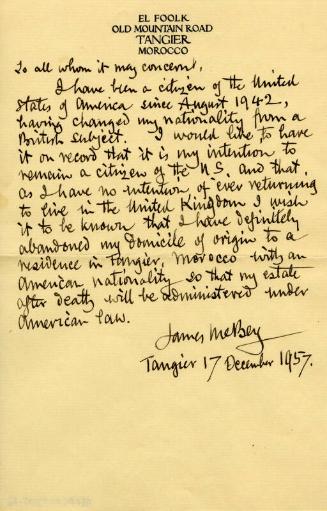 EL FOOLK
OLD MOUNTAIN ROAD
TANGIER
MOROCCO
To all whom it may concern,
I have been a citizen of the United
States of America since August 1942,
having changed my nationality from a
British subject. I would like to have
it on record that it is my intention to
remain a citizen of the U.S. and that,
as I have no intention of ever returning
to live in the United Kingdom I wish
it to be known that I have definitely
abandoned my domicile of origin to a
residence in Tangier, Morocco with an
American nationality so that my estate
after death will be administered under
American law.
James McBey
Tangier 17 December 1957.